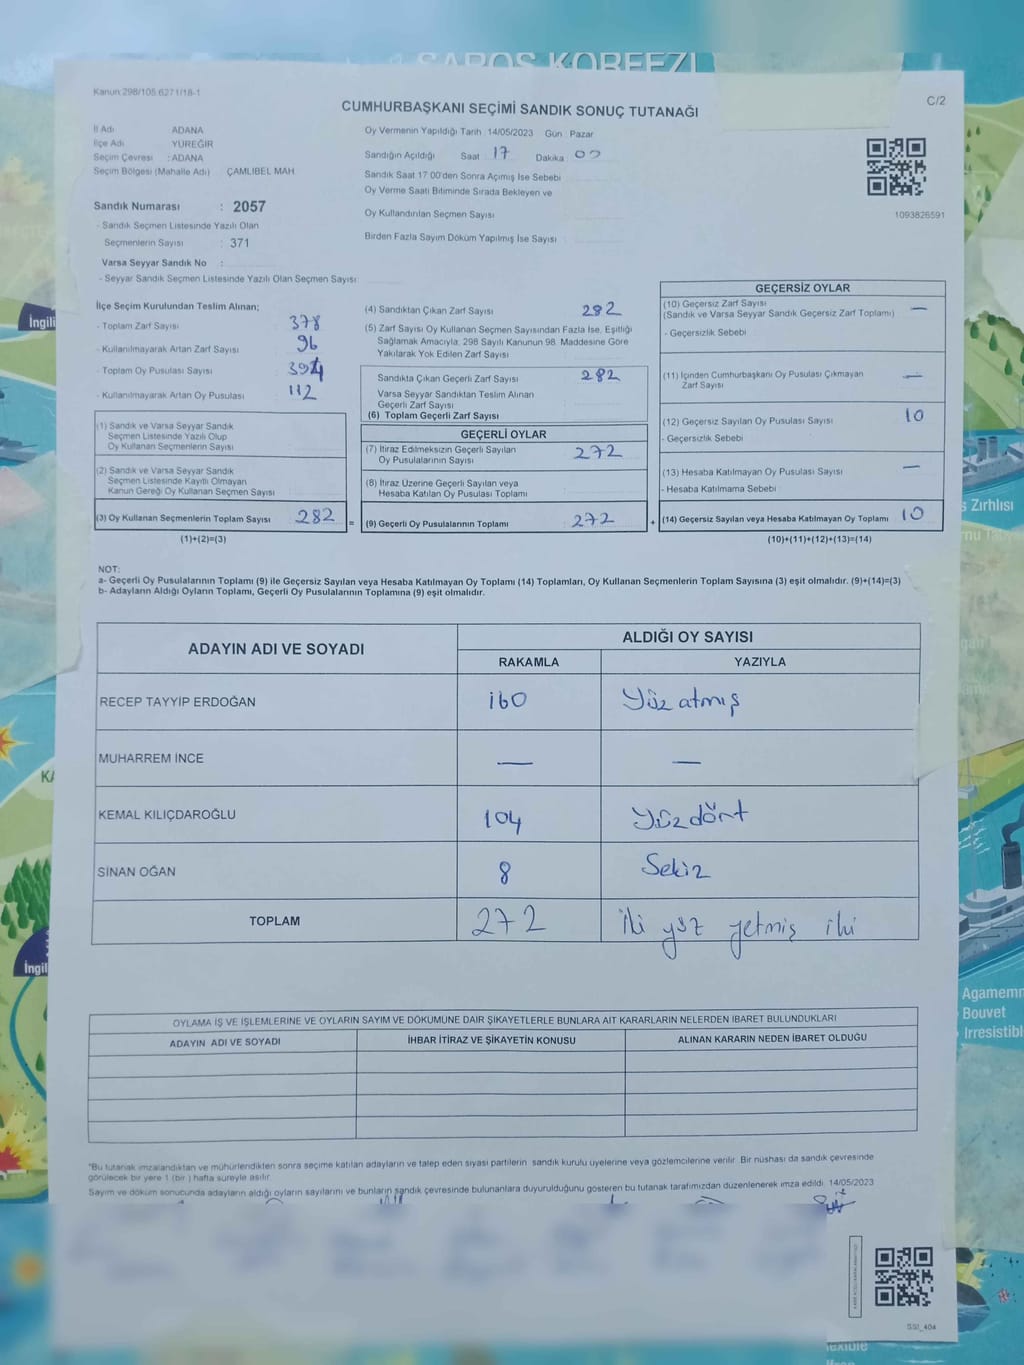 SAROS KÖRFEZİ
Kanun:298/105.6271/18-1
C/2
CUMHURBAŞKANI SEÇİMİ SANDIK SONUÇ TUTANAĞI
İl Adı ADANA
İlçe Adı YÜREĞİR
Seçim Çevresi : ADANA
Seçim Bölgesi (Mahalle Adı) ÇAMLIBEL MAH
Sandık Numarası : 2057
- Sandık Seçmen Listesinde Yazılı Olan
Seçmenlerin Sayısı : 371
Varsa Seyyar Sandık No :
- Seyyar Sandık Seçmen Listesinde Yazılı Olan Seçmen Sayısı
Oy Vermenin Yapıldığı Tarih :14/05/2023 Gün : Pazar
Sandığın Açıldığı Saat 17 Dakika 00
Sandık Saat 17:00'den Sonra Açımış İse Sebebi
Oy Verme Saati Bitiminde Sırada Bekleyen ve
Oy Kullandırılan Seçmen Sayısı
Birden Fazla Sayım Döküm Yapılmış İse Sayısı
1093826591
İlçe Seçim Kurulundan Teslim Alınan;
- Toplam Zarf Sayısı 378
- Kullanılmayarak Artan Zarf Sayısı 96
- Toplam Oy Pusulası Sayısı 394
- Kullanılmayarak Artan Oy Pusulası 112
(1) Sandık ve Varsa Seyyar Sandık
Seçmen Listesinde Yazılı Olup
Oy Kullanan Seçmenlerin Sayısı
(2) Sandık ve Varsa Seyyar Sandık
Seçmen Listesinde Kayıtlı Olmayan
Kanun Gereği Oy Kullanan Seçmen Sayısı
(3) Oy Kullanan Seçmenlerin Toplam Sayısı 282 =
(1)+(2)=(3)
(4) Sandıktan Çıkan Zarf Sayısı 282
(5) Zarf Sayısı Oy Kullanan Seçmen Sayısından Fazla İse, Eşitliği
Sağlamak Amacıyla; 298 Sayılı Kanunun 98. Maddesine Göre
Yakılarak Yok Edilen Zarf Sayısı
Sandıkta Çıkan Geçerli Zarf Sayısı 282
Varsa Seyyar Sandıktan Teslim Alınan
Geçerli Zarf Sayısı
(6) Toplam Geçerli Zarf Sayısı
GEÇERLİ OYLAR
(7) İtiraz Edilmeksizin Geçerli Sayılan
Oy Pusulalarının Sayısı 272
(8) İtiraz Üzerine Geçerli Sayılan veya
Hesaba Katılan Oy Pusulası Toplamı
(9) Geçerli Oy Pusulalarının Toplamı 272 +
GEÇERSİZ OYLAR
(10) Geçersiz Zarf Sayısı —
(Sandık ve Varsa Seyyar Sandık Geçersiz Zarf Toplamı)
- Geçersizlik Sebebi
(11) İçinden Cumhurbaşkanı Oy Pusulası Çıkmayan —
Zarf Sayısı
(12) Geçersiz Sayılan Oy Pusulası Sayısı 10
- Geçersizlik Sebebi
(13) Hesaba Katılmayan Oy Pusulası Sayısı —
- Hesaba Katılmama Sebebi
(14) Geçersiz Sayılan veya Hesaba Katılmayan Oy Toplamı 10
(10)+(11)+(12)+(13)=(14)
NOT:
a- Geçerli Oy Pusulalarının Toplamı (9) ile Geçersiz Sayılan veya Hesaba Katılmayan Oy Toplamı (14) Toplamları, Oy Kullanan Seçmenlerin Toplam Sayısına (3) eşit olmalıdır. (9)+(14)=(3)
b- Adayların Aldığı Oyların Toplamı, Geçerli Oy Pusulalarının Toplamına (9) eşit olmalıdır.
ADAYIN ADI VE SOYADI
ALDIĞI OY SAYISI
RAKAMLA YAZIYLA
RECEP TAYYİP ERDOĞAN 160 Yüz atmış
MUHARREM İNCE — —
KEMAL KILIÇDAROĞLU 104 Yüzdört
SİNAN OĞAN 8 Sekiz
TOPLAM 272 İki yüz yetmiş iki
OYLAMA İŞ VE İŞLEMLERİNE VE OYLARIN SAYIM VE DÖKÜMÜNE DAİR ŞİKAYETLERLE BUNLARA AİT KARARLARIN NELERDEN İBARET BULUNDUKLARI
ADAYIN ADI VE SOYADI İHBAR İTİRAZ VE ŞİKAYETİN KONUSU ALINAN KARARIN NEDEN İBARET OLDUĞU
*Bu tutanak imzalandıktan ve mühürlendikten sonra seçime katılan adayların ve talep eden siyasi partilerin sandık kurulu üyelerine veya gözlemcilerine verilir. Bir nüshası da sandık çevresinde
görülecek bir yere 1 (bir ) hafta süreyle asılır.
Sayım ve döküm sonucunda adayların aldığı oyların sayılarını ve bunların sandık çevresinde bulunanlara duyurulduğunu gösteren bu tutanak tarafımızdan düzenlenerek imza edildi. 14/05/2023
İngili
İngil
s Zırhlısı
Agamemn
Bouvet
Irresistibl